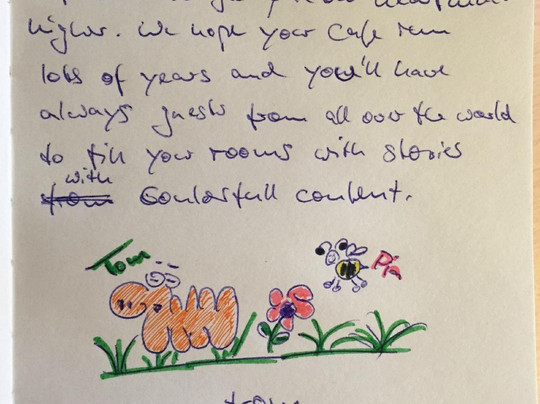 higher. We hope your Cafe run
lots of years and you'll have
always guests from all over the world
to fill your rooms with stories
with
from Coulorfull content.
Tom
Pia
from